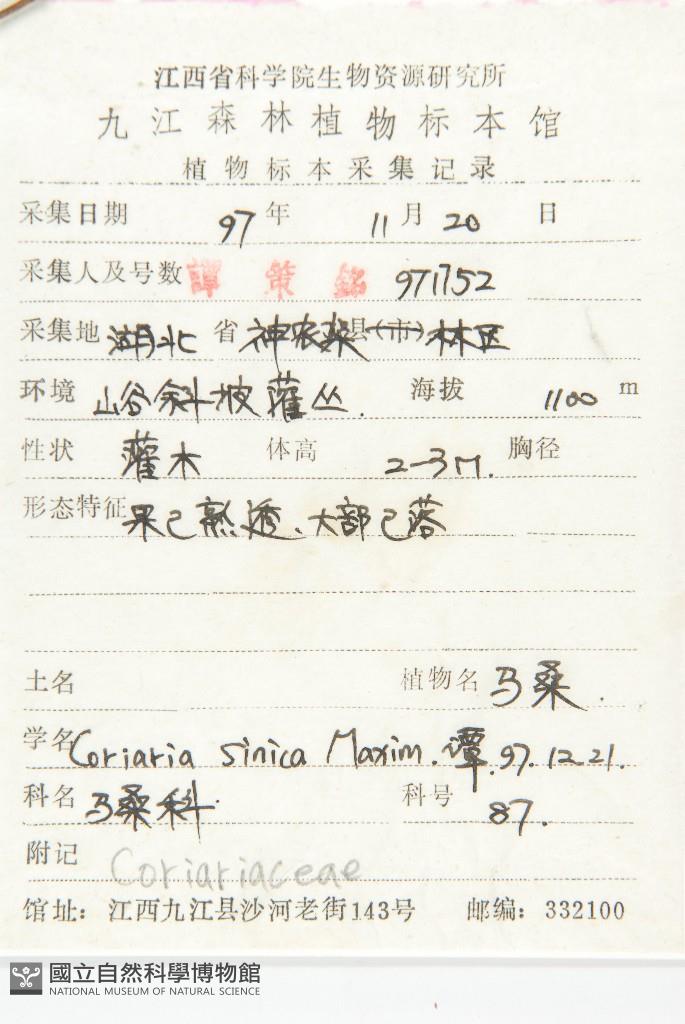 江西省科学院生物资源研究所
九江森林植物标本馆
植物标本采集记录
采集日期 97 年 11 月 20 日
采集人及号数 譚策銘 971752
采集地 湖北 省 神农架 县(市) 林区
环境 山谷斜坡灌丛. 海拔 1100 m
性状 灌木 体高 2-3M. 胸径
形态特征 果已熟透、大部已落
土名 植物名 马桑.
学名 Coriaria sinica Maxim. 谭. 97.12.21.
科名 马桑科. 科号 87.
附记 Coriariaceae
馆址: 江西九江县沙河老街143号 邮编: 332100
國立自然科學博物館
NATIONAL MUSEUM OF NATURAL SCIENCE